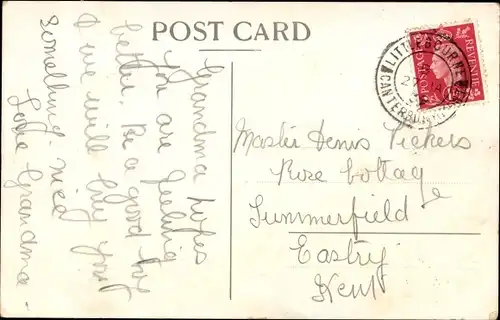 POST CARD
Grandma hopes
you are feeling
better. Be a good boy
& we will buy you
something nice
Love Grandma -
LITTLEBOURNE
CANTERBURY
POSTAGE REVENUE
Master Denis Vickers
Rose Cottage
Summerfield
Eastry
Kent